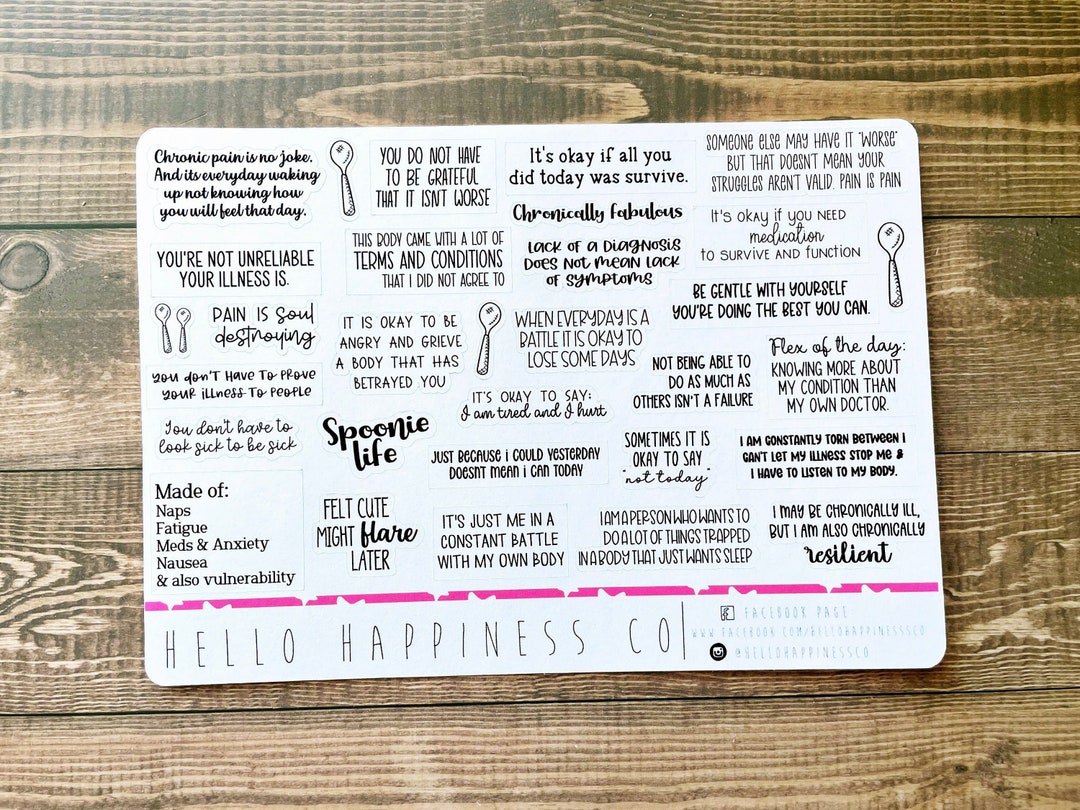 Chronic pain is no joke.
And its everyday waking
up not knowing how
you will feel that day.
YOU DO NOT HAVE
TO BE GRATEFUL
THAT IT ISN'T WORSE
It's okay if all you
did today was survive.
SOMEONE ELSE MAY HAVE IT "WORSE"
BUT THAT DOESN'T MEAN YOUR
STRUGGLES AREN'T VALID. PAIN IS PAIN
Chronically fabulous
YOU'RE NOT UNRELIABLE
YOUR ILLNESS IS.
THIS BODY CAME WITH A LOT OF
TERMS AND CONDITIONS
THAT I DID NOT AGREE TO
lack of a Diagnosis
Does not mean lack
of symptoms
It's okay if you need
medication
to survive and function
BE GENTLE WITH YOURSELF
YOU'RE DOING THE BEST YOU CAN.
PAIN IS soul
destroying
IT IS OKAY TO BE
ANGRY AND GRIEVE
A BODY THAT HAS
BETRAYED YOU
WHEN EVERYDAY IS A
BATTLE IT IS OKAY TO
LOSE SOME DAYS
NOT BEING ABLE TO
DO AS MUCH AS
OTHERS ISN'T A FAILURE
Flex of the day:
KNOWING MORE ABOUT
MY CONDITION THAN
MY OWN DOCTOR.
you don't have to prove
your illness to people
IT'S OKAY TO SAY:
I am tired and I hurt
You don't have to
look sick to be sick
Spoonie
life
JUST BECAUSE i COULD YESTERDAY
DOESNT MEAN i CAN TODAY
SOMETIMES IT IS
OKAY TO SAY
"not today"
I AM CONSTANTLY TORN BETWEEN I
CAN'T LET MY ILLNESS STOP ME &
I HAVE TO LISTEN TO MY BODY.
Made of:
Naps
Fatigue
Meds & Anxiety
Nausea
& also vulnerability
FELT CUTE
MIGHT flare
LATER
IT'S JUST ME IN A
CONSTANT BATTLE
WITH MY OWN BODY
I AM A PERSON WHO WANTS TO
DO A LOT OF THINGS TRAPPED
IN A BODY THAT JUST WANTS SLEEP
I MAY BE CHRONICALLY ILL,
BUT I AM ALSO CHRONICALLY
resilient
HELLO HAPPINESS CO
FACEBOOK PAGE:
WWW.FACEBOOK.COM/HELLOHAPPINESSSCO
@HELLOHAPPINESSCO